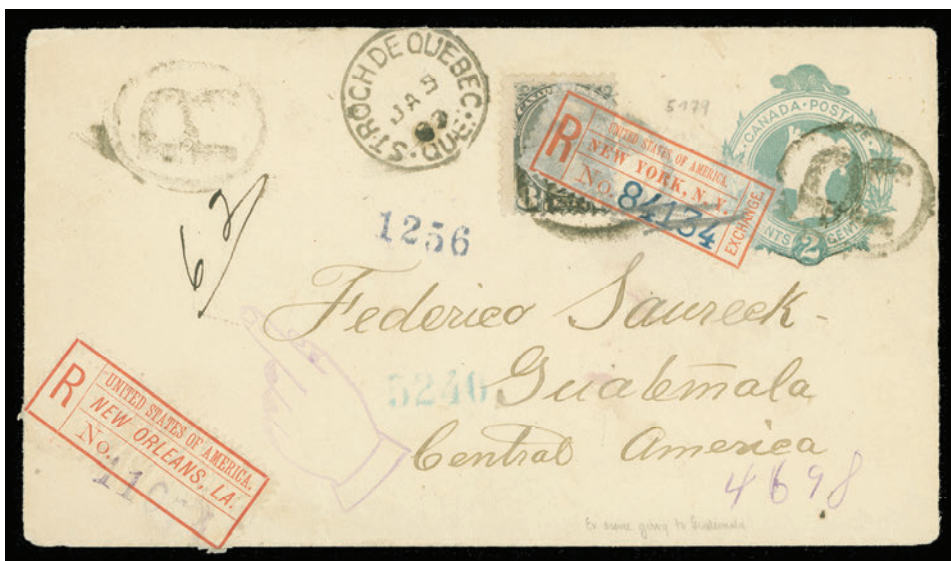 ST ROCH DE QUEBEC · QUE ·
JA
R
5179
CANADA · POSTAGE
2
CENTS
R
UNITED STATES OF AMERICA.
NEW YORK, N. Y.
No. 84134
EXCHANGE
R
1256
62
Federico Saureck -
5240
Guatemala
Central America
4698
R
UNITED STATES OF AMERICA.
NEW ORLEANS, LA.
No.
going to Guatemala